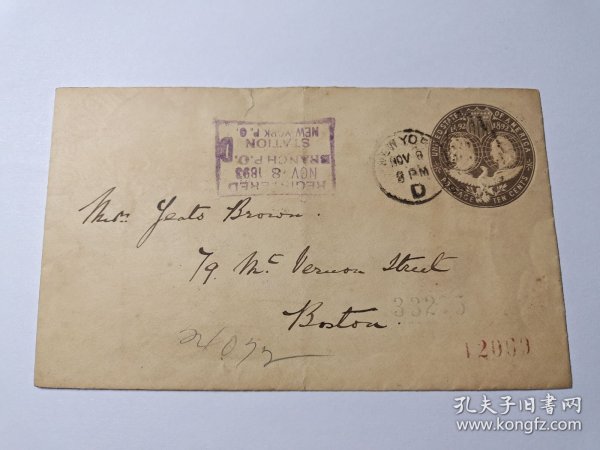 REGISTERED
NOV -8 1893
BRANCH P.O.
STATION
D
NEW YORK P. O.
NEW YO
NOV 8
8 PM
D
UNITED STATES OF AMERICA
1492 1892
POSTAGE TEN CENTS
Mrs. Jeats Brown.
79. Mt. Vernon Street
Boston.
33275
12069
孔夫子旧书网
www.kongfz.com